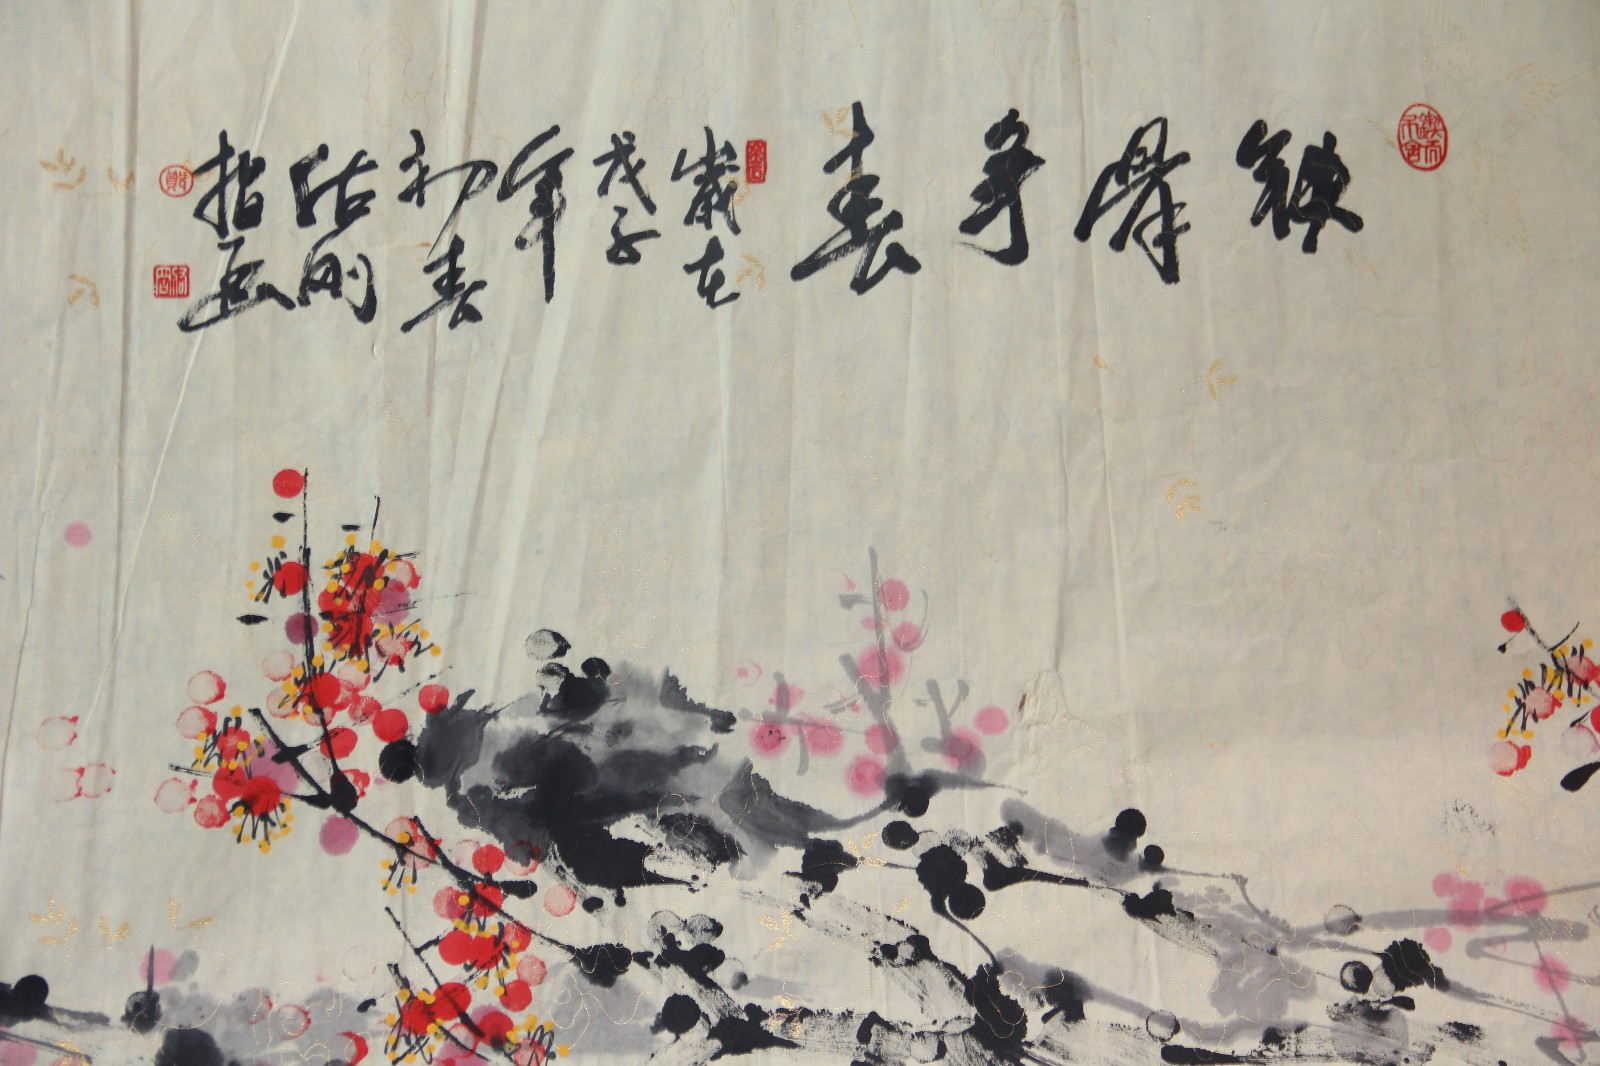 铁骨争春
岁在
戊子
年
初春
佑刚
指画